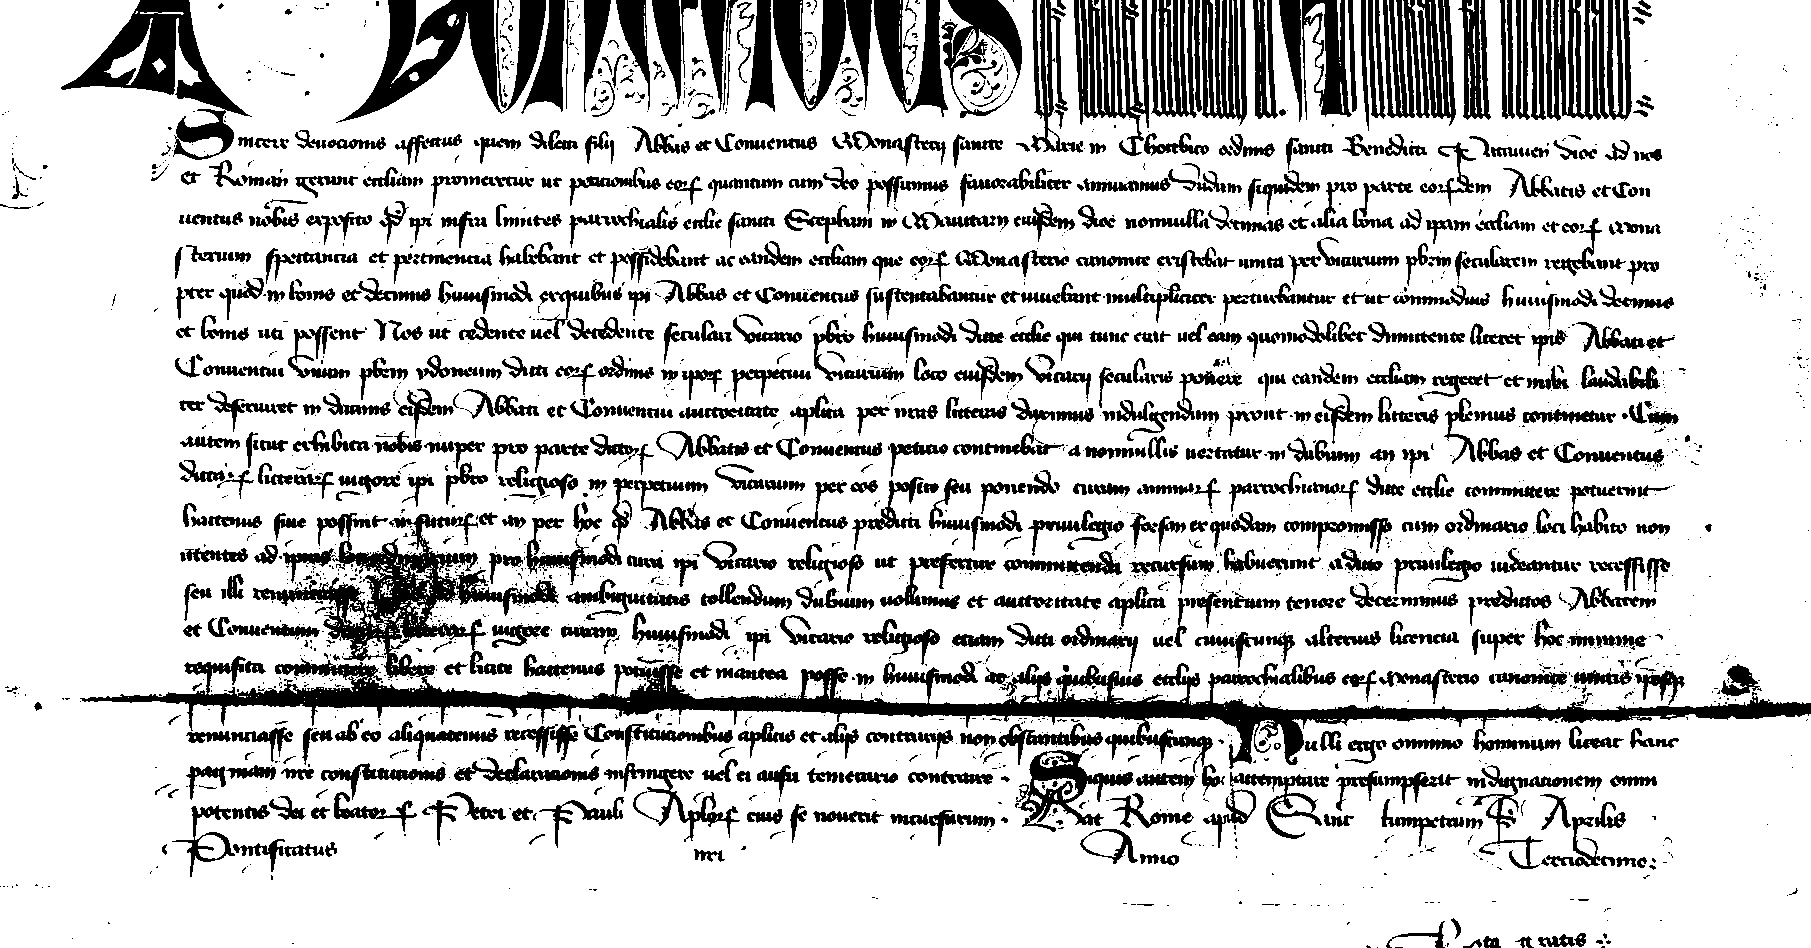 Bonifatius
Sincere deuocionis affectus quem dilecti filij Abbas et Conuentus Monasterij sancte Marie in Chotebico ordinis sancti Benedicti Patauien dioc ad nos
et Roman gerunt eccliam promeretur ut peticionibus eorꝝ quantum cum deo possumus fauorabiliter annuamus Dudum siquidem pro parte eorꝝdem Abbatis et Con
uentus nobis exposito qd ipi infra limites parrochialis ecclie sancti Stephani in Mautarn eiusdem dioc nonnulla decimas et alia bona ad ipam eccliam et eorꝝ Mona
sterium spectancia et pertinencia habebant et possidebant ac eandem eccliam que eorꝝ Monasterio canonice existebat unita per vicarium pbrm secularem regebant pro
pter quod in bonis et decimis huiusmodi ex quibus ipi Abbas et Conuentus sustentabantur et uiuebant multipliciter perturbantur et ut commodius huiusmodi decimis
et bonis uti possent Nos ut cedente uel decedente seculari vicario pbro huiusmodi dicte ecclie qui tunc erat uel eam quomodolibet dimittente liceret ipis Abbati et
Conuentui vnum pbrm ydoneum dicti eorꝝ ordinis in iporꝝ perpetuu vicarium loco eiusdem vicarij secularis ponere qui eandem eccliam regeret et inibi laudabili
ter deseruiret in diuinis eisdem Abbati et Conuentui auctoritate aplica per nras litteras duximus indulgendum prout in eisdem litteris plenius continetur · Cum
autem sicut exhibita nobis nuper pro parte dictorꝝ Abbatis et Conuentus peticio continebat a nonnullis uertatur in dubium an ipi Abbas et Conuentus
dictarꝝ litterarꝝ uigore ipi pbro religioso in perpetuum vicarium per eos posito seu ponendo curam animarꝝ parrochianorꝝ dicte ecclie committere potuerint
hactenus siue possint in futurꝝ et an per hoc qd Abbas et Conuentus predicti huiusmodi priuilegio forsan ex quodam compromisso cum ordinario loci habito non
utentes ad ipius pro huiusmodi cura ipi vicario religioso ut prefertur committenda recursum habuerint a dicto priuilegio uideantur recessisse
seu illi renunciasse huiusmodi ambiguitatis tollendum dubium uolumus et auctoritate aplica presentium tenore decernimus predictos Abbatem
et Conuentum dictarꝝ litterarꝝ uigore curam huiusmodi ipi vicario religioso etiam dicti ordinarij uel cuiuscunqꝫ alterius licencia super hoc minime
requisita committere libere et licite hactenus potuisse et inantea posse in huiusmodi ac alijs quibusuis ecclijs parrochialibus eorꝝ Monasterio canonice unitis ipsosqꝫ
renunciasse seu ab eo aliquatenus recessisse Constitucionibus aplicis et alijs contrarijs non obstantibus quibuscunqꝫ · Nulli ergo omnino hominum liceat hanc
paginam nre constitucionis et declaracionis infringere uel ei ausu temerario contraire · Siquis autem hoc attemptare presumpserit indignacionem omni
potentis dei et beatorꝝ Petri et Pauli Aplorꝝ eius se nouerit incursurum · Dat Rome apud Sanctumpetrum Aprilis
Pontificatus nri Anno Terciodecimo
gratis